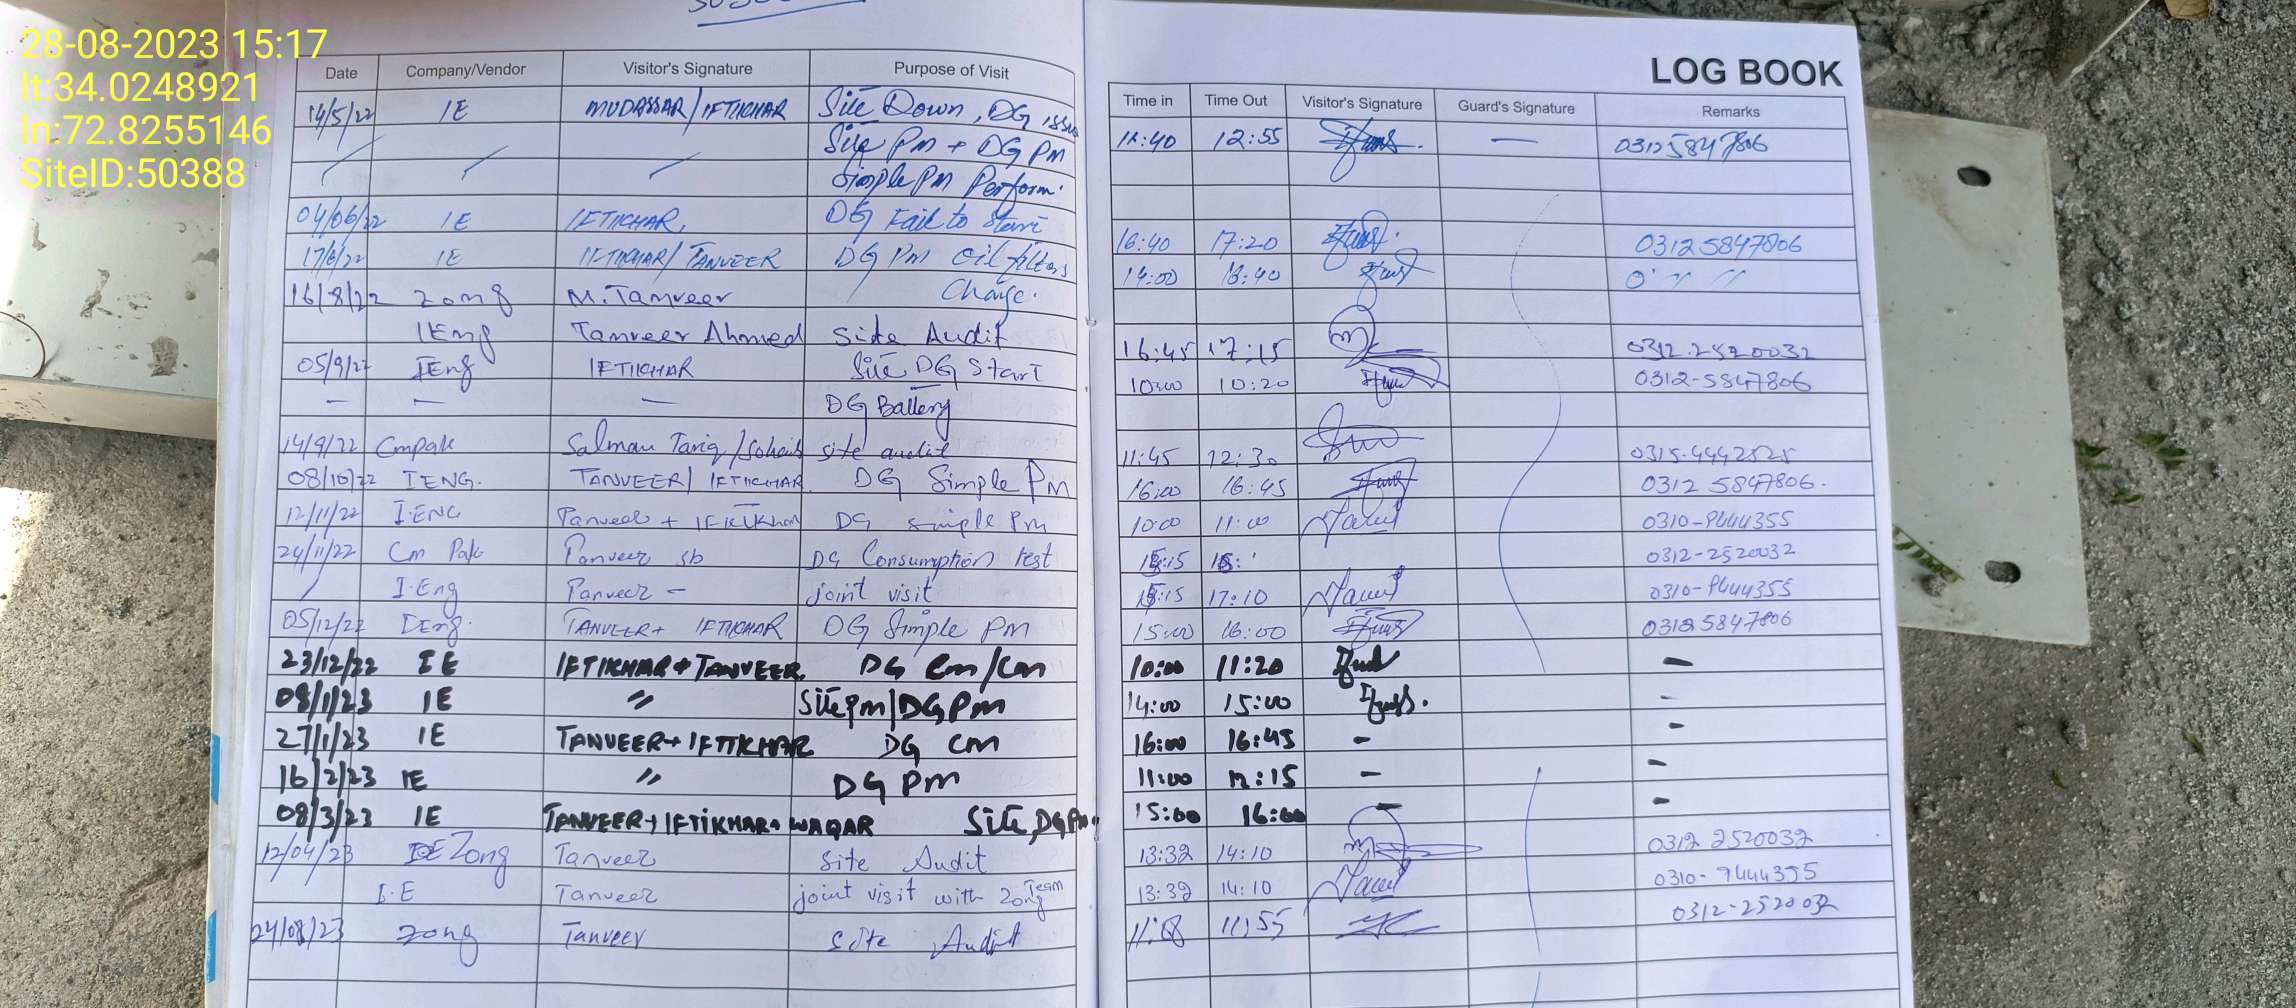 28-08-2023 15:17
lt:34.0248921
ln:72.8255146
SiteID:50388
LOG BOOK
Date Company/Vendor Visitor's Signature Purpose of Visit Time in Time Out Visitor's Signature Guard's Signature Remarks
14/5/22 IE MUDASSAR/IFTIKHAR Site Down, DG issue 12:55 — 03125847806
Site PM + DG PM
Simple PM Perform.
04/06/22 IE IFTIKHAR, DG Fail to Start 16:40 17:20 03125847806
17/6/22 IE IFTIKHAR/TANVEER DG PM oil filters 18:40
16/8/22 Zong M.Tanveer Change.
IEng Tanveer Ahmed Site Audit 16:45 17:15 0312.2520032
05/9/22 IEng IFTIKHAR Site DG Start 10:00 10:20 0312-5847806
— — — DG Battery
14/9/22 Cmpak Salman Tariq/Sohaib site audit 11:45 12:30 0315-4442525
08/10/22 IENG. TANVEER/IFTIKHAR DG Simple PM 16:00 16:45 0312 5847806.
12/11/22 I.ENG Tanveer + IFTIKHAR DG simple PM 10:00 11:00 0310-9444355
24/11/22 Cm Pak Tanveer sb DG Consumption test 15:15 0312-2520032
I.Eng Tanveer - joint visit 15:15 17:10 0310-9444355
05/12/22 IEng. TANVEER+ IFTIKHAR DG Simple PM 15:00 16:00 03125847806
23/12/22 IE IFTIKHAR+TANVEER DG Cm/Cm 10:00 11:20 -
08/1/23 IE " Site Pm/DG Pm 14:00 15:00 -
27/1/23 IE TANVEER+IFTIKHAR DG CM 16:00 16:45 - -
16/2/23 IE " DG PM 11:00 12:15 - -
08/3/23 IE TANVEER+IFTIKHAR+WAQAR Site, DG Pm 15:00 16:00 - -
12/04/23 Zong Tanveer Site Audit 13:32 14:10 0312 2520032
I.E Tanveer joint visit with Zong Team 13:32 14:10 0310-9444355
24/08/23 Zong Tanveer Site Audit 11:55 0312-2520032